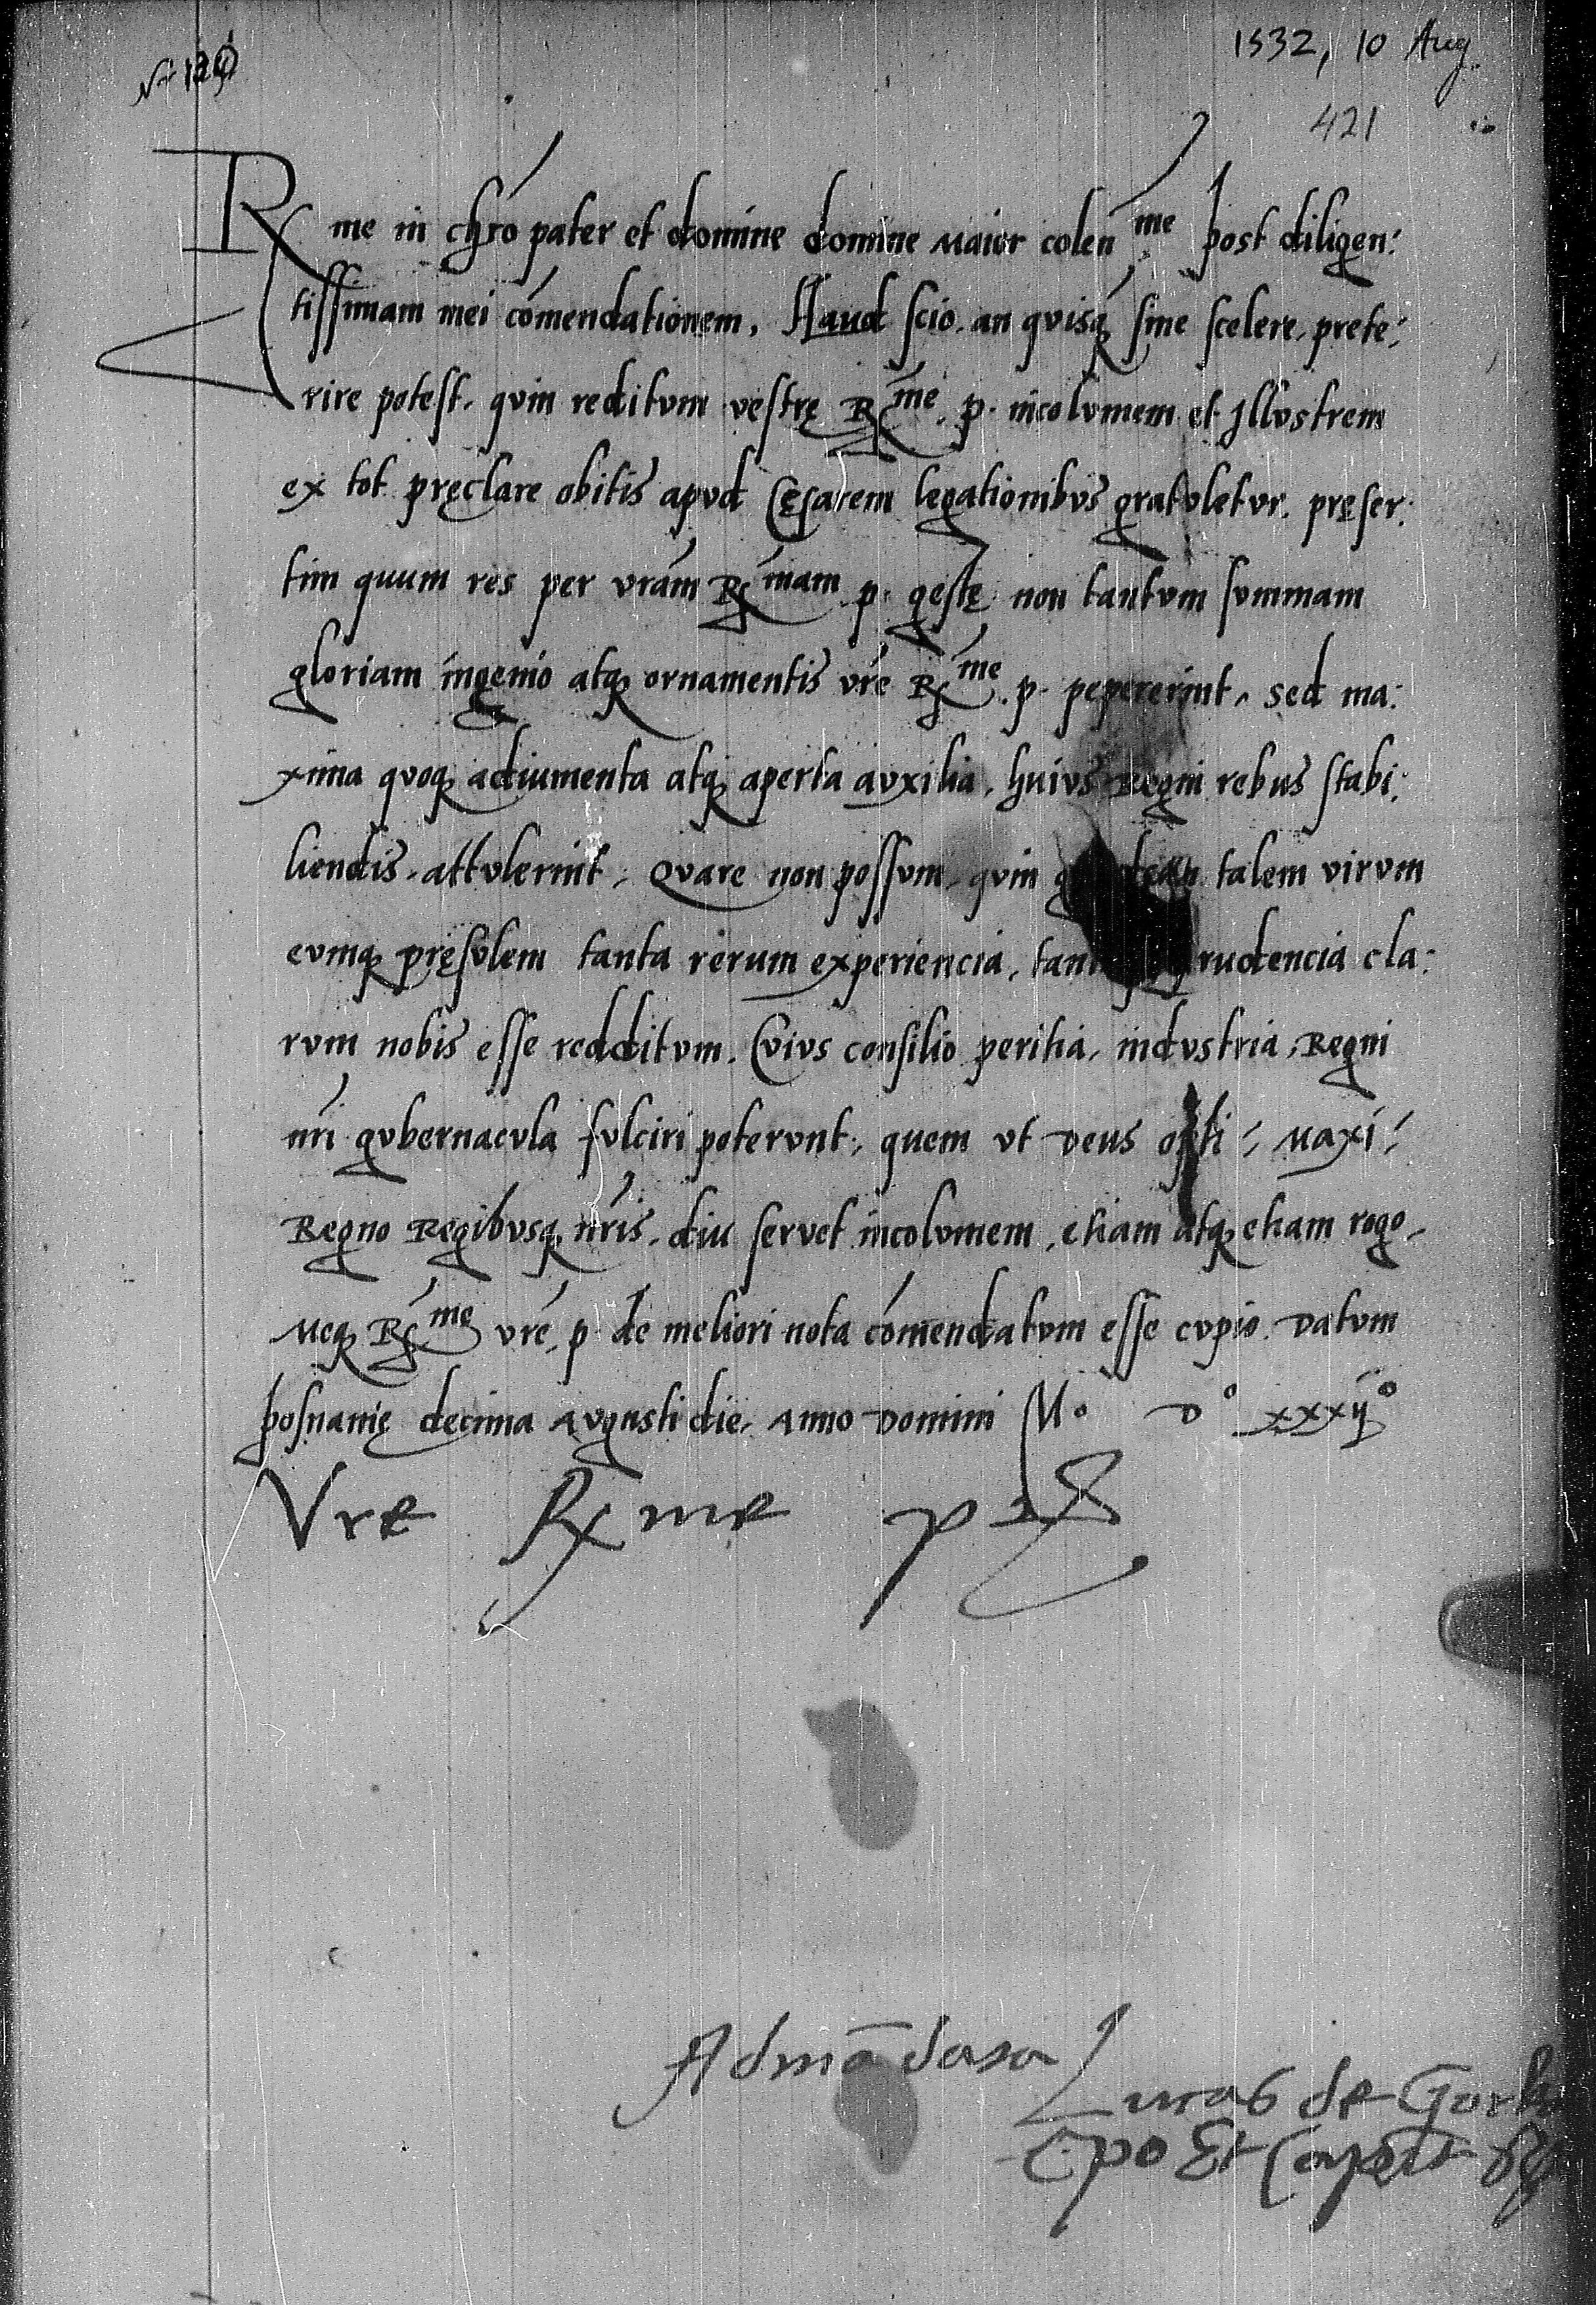 1532, 10 Aug.
421
Rme in chro pater et domine domine Maior colen me post diligen:
tissimam mei comendationem. Haud scio. an quisq sine scelere. prete:
rire potest. quin reditum vestrę Rme. p. incolumem et Illustrem
ex tot pręclare obitis apud Cęsarem legationibus gratuletur. pręser:
tim quum res per vram Rmam p. gestę non tantum summam
gloriam ingenio atq ornamentis vre Rme. p. pepererint, sed ma:
xima quoq adiumenta atq aperta auxilia, huius Regni rebus stabi:
liendis. attulerint, Quare non possum, quin talem virum
eumq pręsulem tanta rerum experiencia, prudencia cla:
rum nobis esse redditum. Cuius consilio peritia, industria, Regni
nri gubernacula fulciri poterunt, quem ut Deus opti: Maxi:
Regno Regibusq nris. diu servet incolumem, etiam atq etiam rogo,
Meq Rme vre. p. de meliori nota comendatum esse cupio. Datum
posnanię decima Augusti die, Anno Domini Mo Do xxxijo
Vre Rme p
Lucas de Gorka
Epo Et